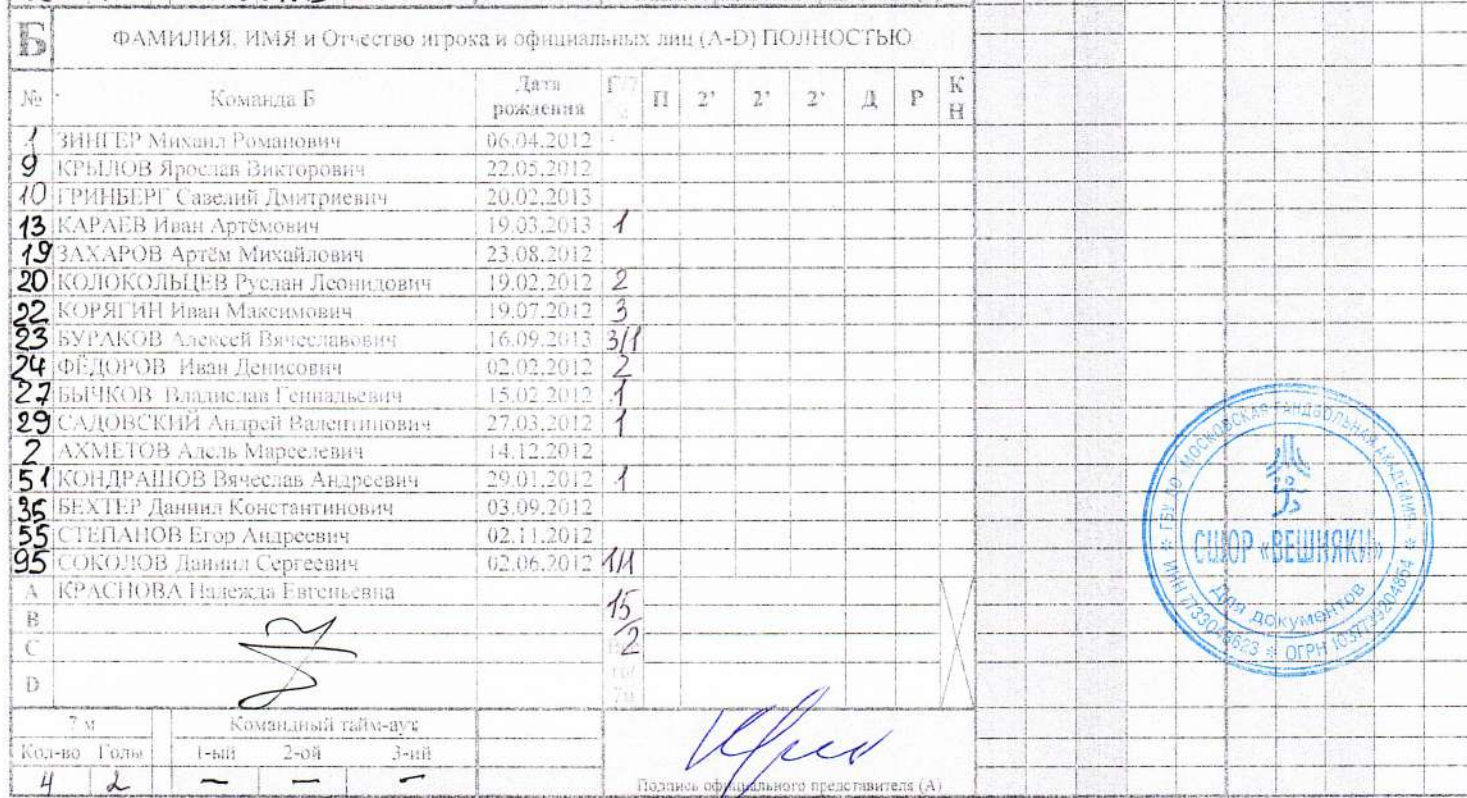 Б ФАМИЛИЯ, ИМЯ и Отчество игрока и официальных лиц (A-D) ПОЛНОСТЬЮ
№ Команда Б Дата рождения Г/7 П 2' 2' 2' Д Р К Н
1 ЗИНГЕР Михаил Романович 06.04.2012 -
9 КРЫЛОВ Ярослав Викторович 22.05.2012
10 ГРИНБЕРГ Савелий Дмитриевич 20.02.2013
13 КАРАЕВ Иван Артёмович 19.03.2013 1
19 ЗАХАРОВ Артём Михайлович 23.08.2012
20 КОЛОКОЛЬЦЕВ Руслан Леонидович 19.02.2012 2
22 КОРЯГИН Иван Максимович 19.07.2012 3
23 БУРАКОВ Алексей Вячеславович 16.09.2013 3/1
24 ФЁДОРОВ Иван Денисович 02.02.2012 2
27 БЫЧКОВ Владислав Геннадьевич 15.02.2012 1
29 САДОВСКИЙ Андрей Валентинович 27.03.2012 1
2 АХМЕТОВ Адель Марселевич 14.12.2012
51 КОНДРАШОВ Вячеслав Андреевич 29.01.2012 1
35 БЕХТЕР Даниил Константинович 03.09.2012
55 СТЕПАНОВ Егор Андреевич 02.11.2012
95 СОКОЛОВ Даниил Сергеевич 02.06.2012 1/1
A КРАСНОВА Надежда Евгеньевна 15/2
B
C
D
7 м Командный тайм-аут
Кол-во Голы 1-ый 2-ой 3-ий
4 2 — — —
Подпись официального представителя (А)
ГБУ ДО МОСКОВСКАЯ ГАНДБОЛЬНАЯ АКАДЕМИЯ
СШОР «ВЕШНЯКИ»
Для документов